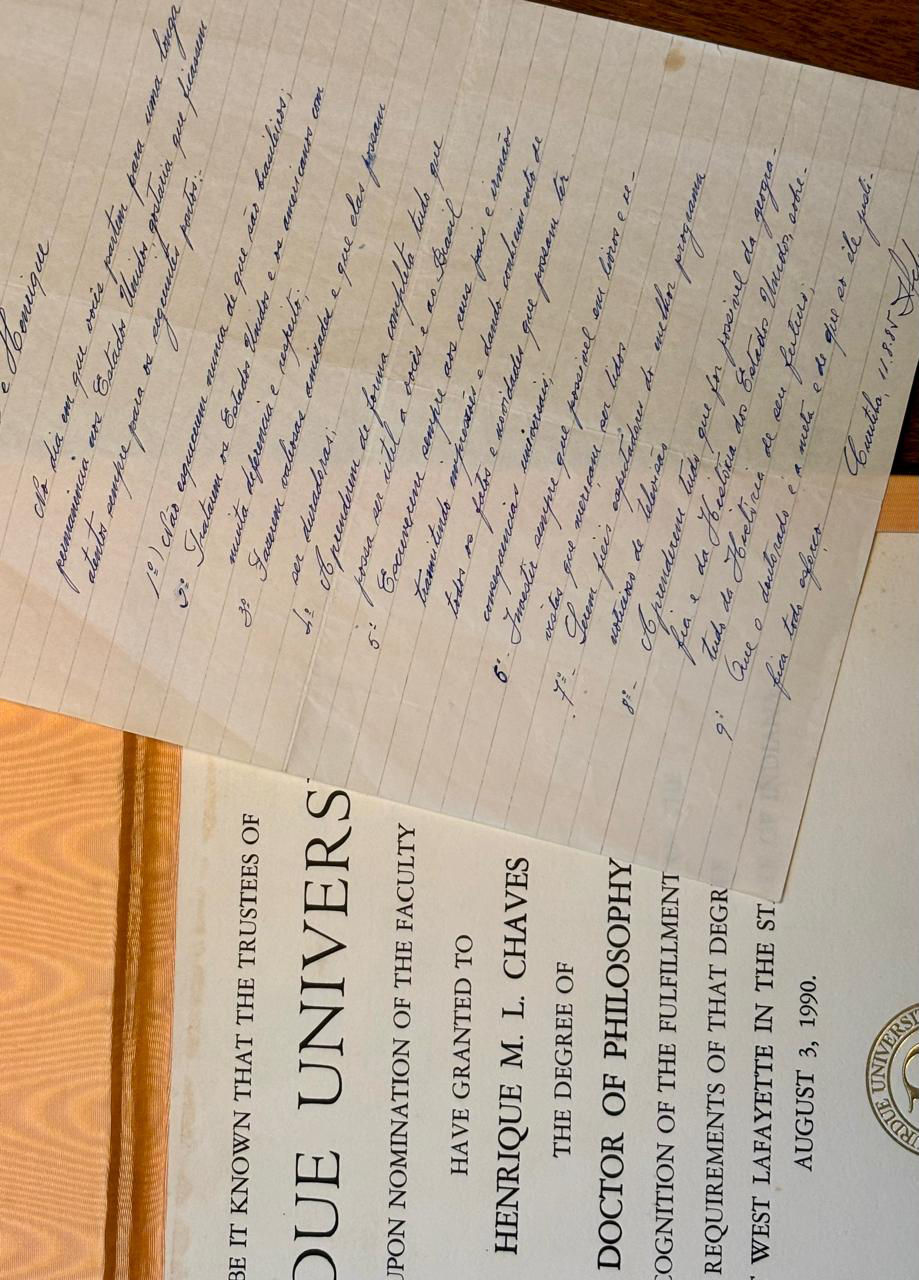 e Henrique
No dia em que vocês partem para uma longa
permanência nos Estados Unidos gostaria que ficassem
atentos sempre para os seguintes pontos:
1º) Não esqueçam nunca de que são brasileiros;
2º Tratem os Estados Unidos e os americanos com
muita deferência e respeito;
3º Façam valiosas amizades e que elas possam
ser duradouras;
4º Aprenderem de forma completa tudo que
possa ser útil a vocês e ao Brasil
5º Escreverem sempre aos seus pais e irmãos
transmitindo impressões e dando conhecimento de
todos os fatos e novidades que possam ter
consequencias universais;
6º- Investir sempre que possível em livros e re-
vistas que mereçam ser lidos
7º- Serem fiéis espectadores do melhor programa
noticioso de televisão
8º- Aprenderem tudo que for possivel da geogra-
fia e da História dos Estados Unidos, sobre-
tudo da História de seu futuro;
9º Que o doutorado é a meta e de que só ele justi-
fica todo esforço
Curitiba, 11.8.85
BE IT KNOWN THAT THE TRUSTEES OF
DUE UNIVERS
UPON NOMINATION OF THE FACULTY
HAVE GRANTED TO
HENRIQUE M. L. CHAVES
THE DEGREE OF
DOCTOR OF PHILOSOPHY
COGNITION OF THE FULFILLMENT
REQUIREMENTS OF THAT DEGR
WEST LAFAYETTE IN THE ST
AUGUST 3, 1990.
RDUE UNIVERSI